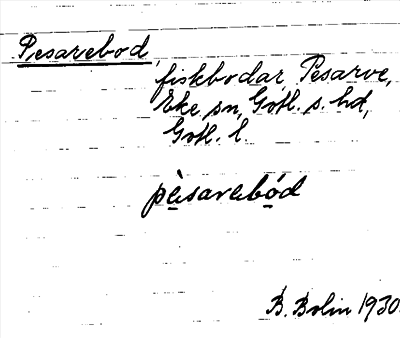 Pesarebod,
fiskbodar, Pesarve,
Eke sn, Gotl. s. hd,
Gotl. l.
pèsarebód
B. Bolin 1930.